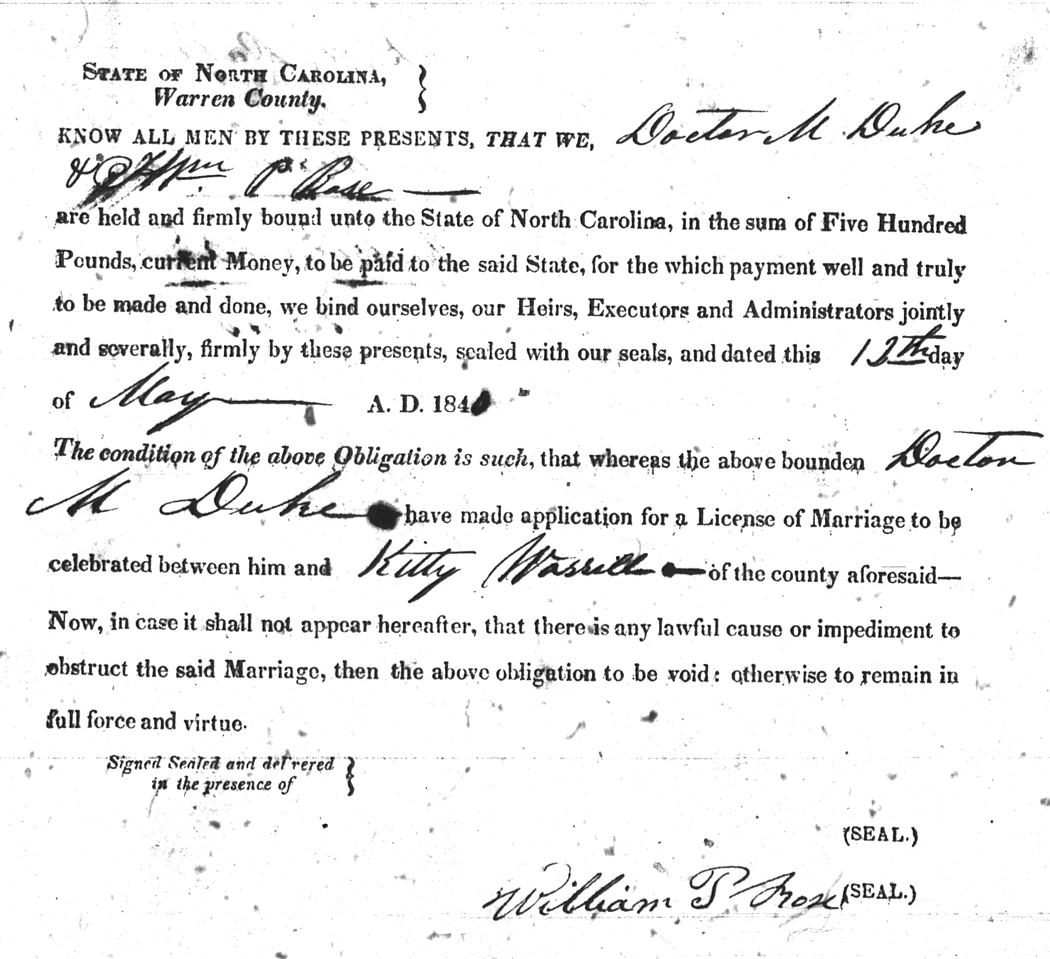 STATE OF NORTH CAROLINA,
Warren County.
KNOW ALL MEN BY THESE PRESENTS, THAT WE, Doctor M Duke
& Wm P Rose
are held and firmly bound unto the State of North Carolina, in the sum of Five Hundred
Pounds, current Money, to be paid to the said State, for the which payment well and truly
to be made and done, we bind ourselves, our Heirs, Executors and Administrators jointly
and severally, firmly by these presents, sealed with our seals, and dated this 12th day
of May A. D. 184
The condition of the above Obligation is such, that whereas the above bounden Doctor
M Duke have made application for a License of Marriage to be
celebrated between him and Kitty of the county aforesaid—
Now, in case it shall not appear hereafter, that there is any lawful cause or impediment to
obstruct the said Marriage, then the above obligation to be void: otherwise to remain in
full force and virtue.
Signed Sealed and delivered
in the presence of
(SEAL.)
William P Rose (SEAL.)